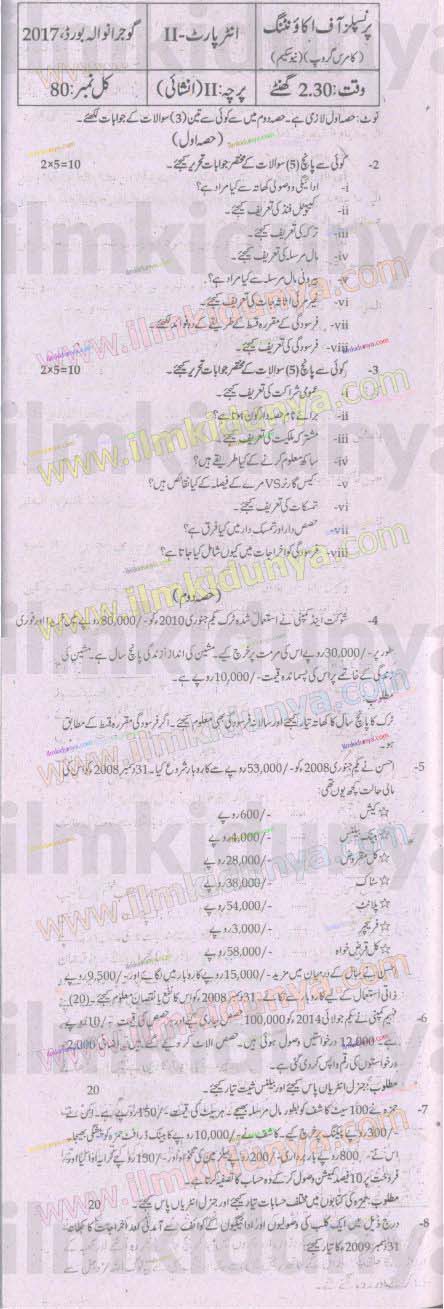 پرنسپلز آف اکاؤنٹنگ
انٹر پارٹ-II
گوجرانوالہ بورڈ، 2017
(کامرس گروپ) (نیو سکیم)
وقت: 2.30 گھنٹے
پرچہ: II (انشائی)
کل نمبر: 80
نوٹ: حصہ اول لازمی ہے۔ حصہ دوم میں سے کوئی سے تین (3) سوالات کے جوابات لکھئے۔
(حصہ اول)
2- کوئی سے پانچ (5) سوالات کے مختصر جوابات تحریر کیجئے۔ 2×5=10
i- ادائیگی و وصولی کھاتہ سے کیا مراد ہے؟
ii- کیپیٹل فنڈ کی تعریف کیجئے۔
iii- ترکہ کی تعریف کیجئے۔
iv- مال مرسلہ کی تعریف کیجئے۔
v- بیرونی مال مرسلہ سے کیا مراد ہے؟
vi- غیر مرئی اثاثہ جات کی تعریف کیجئے۔
vii- فرسودگی کے مقررہ قسط کے طریقے کے دو فوائد لکھئے۔
viii- فرسودگی کی تعریف کیجئے۔
3- کوئی سے پانچ (5) سوالات کے مختصر جوابات تحریر کیجئے۔ 2×5=10
i- عمومی شراکت کی تعریف کیجئے۔
ii- برائے نام حصہ دار کون ہوتا ہے؟
iii- مشترکہ ملکیت کی تعریف کیجئے۔
iv- ساکھ معلوم کرنے کے کیا طریقے ہیں؟
v- کیس گارنر VS مرے کے فیصلہ کے کیا نقائص ہیں؟
vi- تمسکات کی تعریف کیجئے۔
vii- حصص دار اور تمسک دار میں کیا فرق ہے؟
viii- فرسودگی کو اخراجات میں کیوں شامل کیا جاتا ہے؟
(حصہ دوم)
4- شوکت اینڈ کمپنی نے استعمال شدہ ٹرک یکم جنوری 2010 کو -/80,000 روپے میں خریدا اور فوری
طور پر -/30,000 روپے اس کی مرمت پر خرچ کیے۔ مشین کی اندازاً زندگی پانچ سال ہے۔ مشین کی
زندگی کے خاتمے پر اس کی پسماندہ قیمت -/10,000 روپے ہے۔
مطلوب:
ٹرک کا پانچ سال کا کھاتہ تیار کیجئے اور سالانہ فرسودگی بھی معلوم کیجئے۔ اگر فرسودگی مقررہ قسط کے مطابق
ہو۔
5- احسن نے یکم جنوری 2008 کو -/53,000 روپے سے کاروبار شروع کیا۔ 31 دسمبر 2008 کو اس کی
مالی حالت کچھ یوں تھی:
☆ کیش -/600 روپے
☆ بینک بیلنس -/4,000 روپے
☆ کل مقروض -/28,000 روپے
☆ سٹاک -/38,000 روپے
☆ پلانٹ -/54,000 روپے
☆ فرنیچر -/3,000 روپے
☆ کل قرض خواہ -/58,000 روپے
احسن نے سال کے درمیان میں مزید -/15,000 روپے کاروبار میں لگائے اور -/9,500 روپے
ذاتی استعمال کے لیے کاروبار سے نکالے۔ 31 دسمبر 2008 کو اس کا نفع یا نقصان معلوم کیجئے۔ (20)
6- فہیم کمپنی نے یکم جولائی 2014 کو 100,000 حصص جاری کیے اور حصص کی قیمت -/10 روپے
ہے 12,000 درخواستیں وصول ہوئی ہیں۔ حصص الاٹ کر دیے گئے ہیں۔ اضافی 2,000
درخواستوں کی رقم واپس کر دی گئی ہے۔
مطلوب: جنرل انٹریاں پاس کیجئے اور بیلنس شیٹ تیار کیجئے۔ 20
7- حمزہ نے 100 سیٹ کاشف کو بطور مال مرسلہ بھیجے۔ ہر سیٹ کی قیمت -/150 روپے ہے۔ اس نے
-/300 روپے پیکنگ پر خرچ کیے۔ کاشف نے -/10,000 روپے کا بینک ڈرافٹ حمزہ کو پیشگی بھیجا۔
اس نے -/800 روپے بار برداری، -/200 روپے
فروخت پر 10 فیصد کمیشن وصول کر کے وہ حساب کا تصفیہ کرتا ہے۔
مطلوب: حمزہ کی کتابوں میں مختلف حسابات تیار کیجئے اور جنرل انٹریاں پاس کیجئے۔ 20
8- درج ذیل میں ایک کلب کی وصولیوں اور ادائیگیوں کے کوائف سے آمدنی اور اخراجات کا کھاتہ
31 دسمبر 2009ء کا تیار کیجئے:
www.ilmkidunya.com
ilmkidunya.com